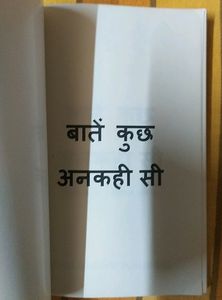 बातें कुछ
अनकही सी